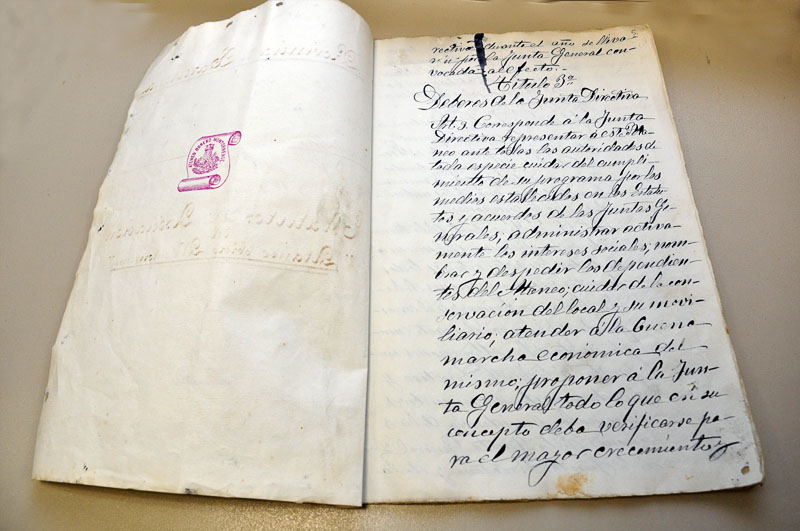 rectiva durante el año se lleva
por la Junta General con-
vocada al efecto.
Título 3º
Deberes de la Junta Directiva
Art. 9. Corresponde á la Junta
Directiva representar á este Ate-
neo ante todas las autoridades de
toda especie cuidar del cumpli-
miento de su programa por los
medios establecidos en los Estatu-
tos y acuerdos de las Juntas Ge-
nerales; administrar activa-
mente los intereses sociales; nom-
brar y despedir los dependien-
tes del Ateneo; cuidar de la con-
servación del local y su movi-
liario; atender á la buena
marcha económica del
mismo; proponer á la Jun-
ta General todo lo que en su
concepto deba verificarse pa-
ra el mayor crecimiento y